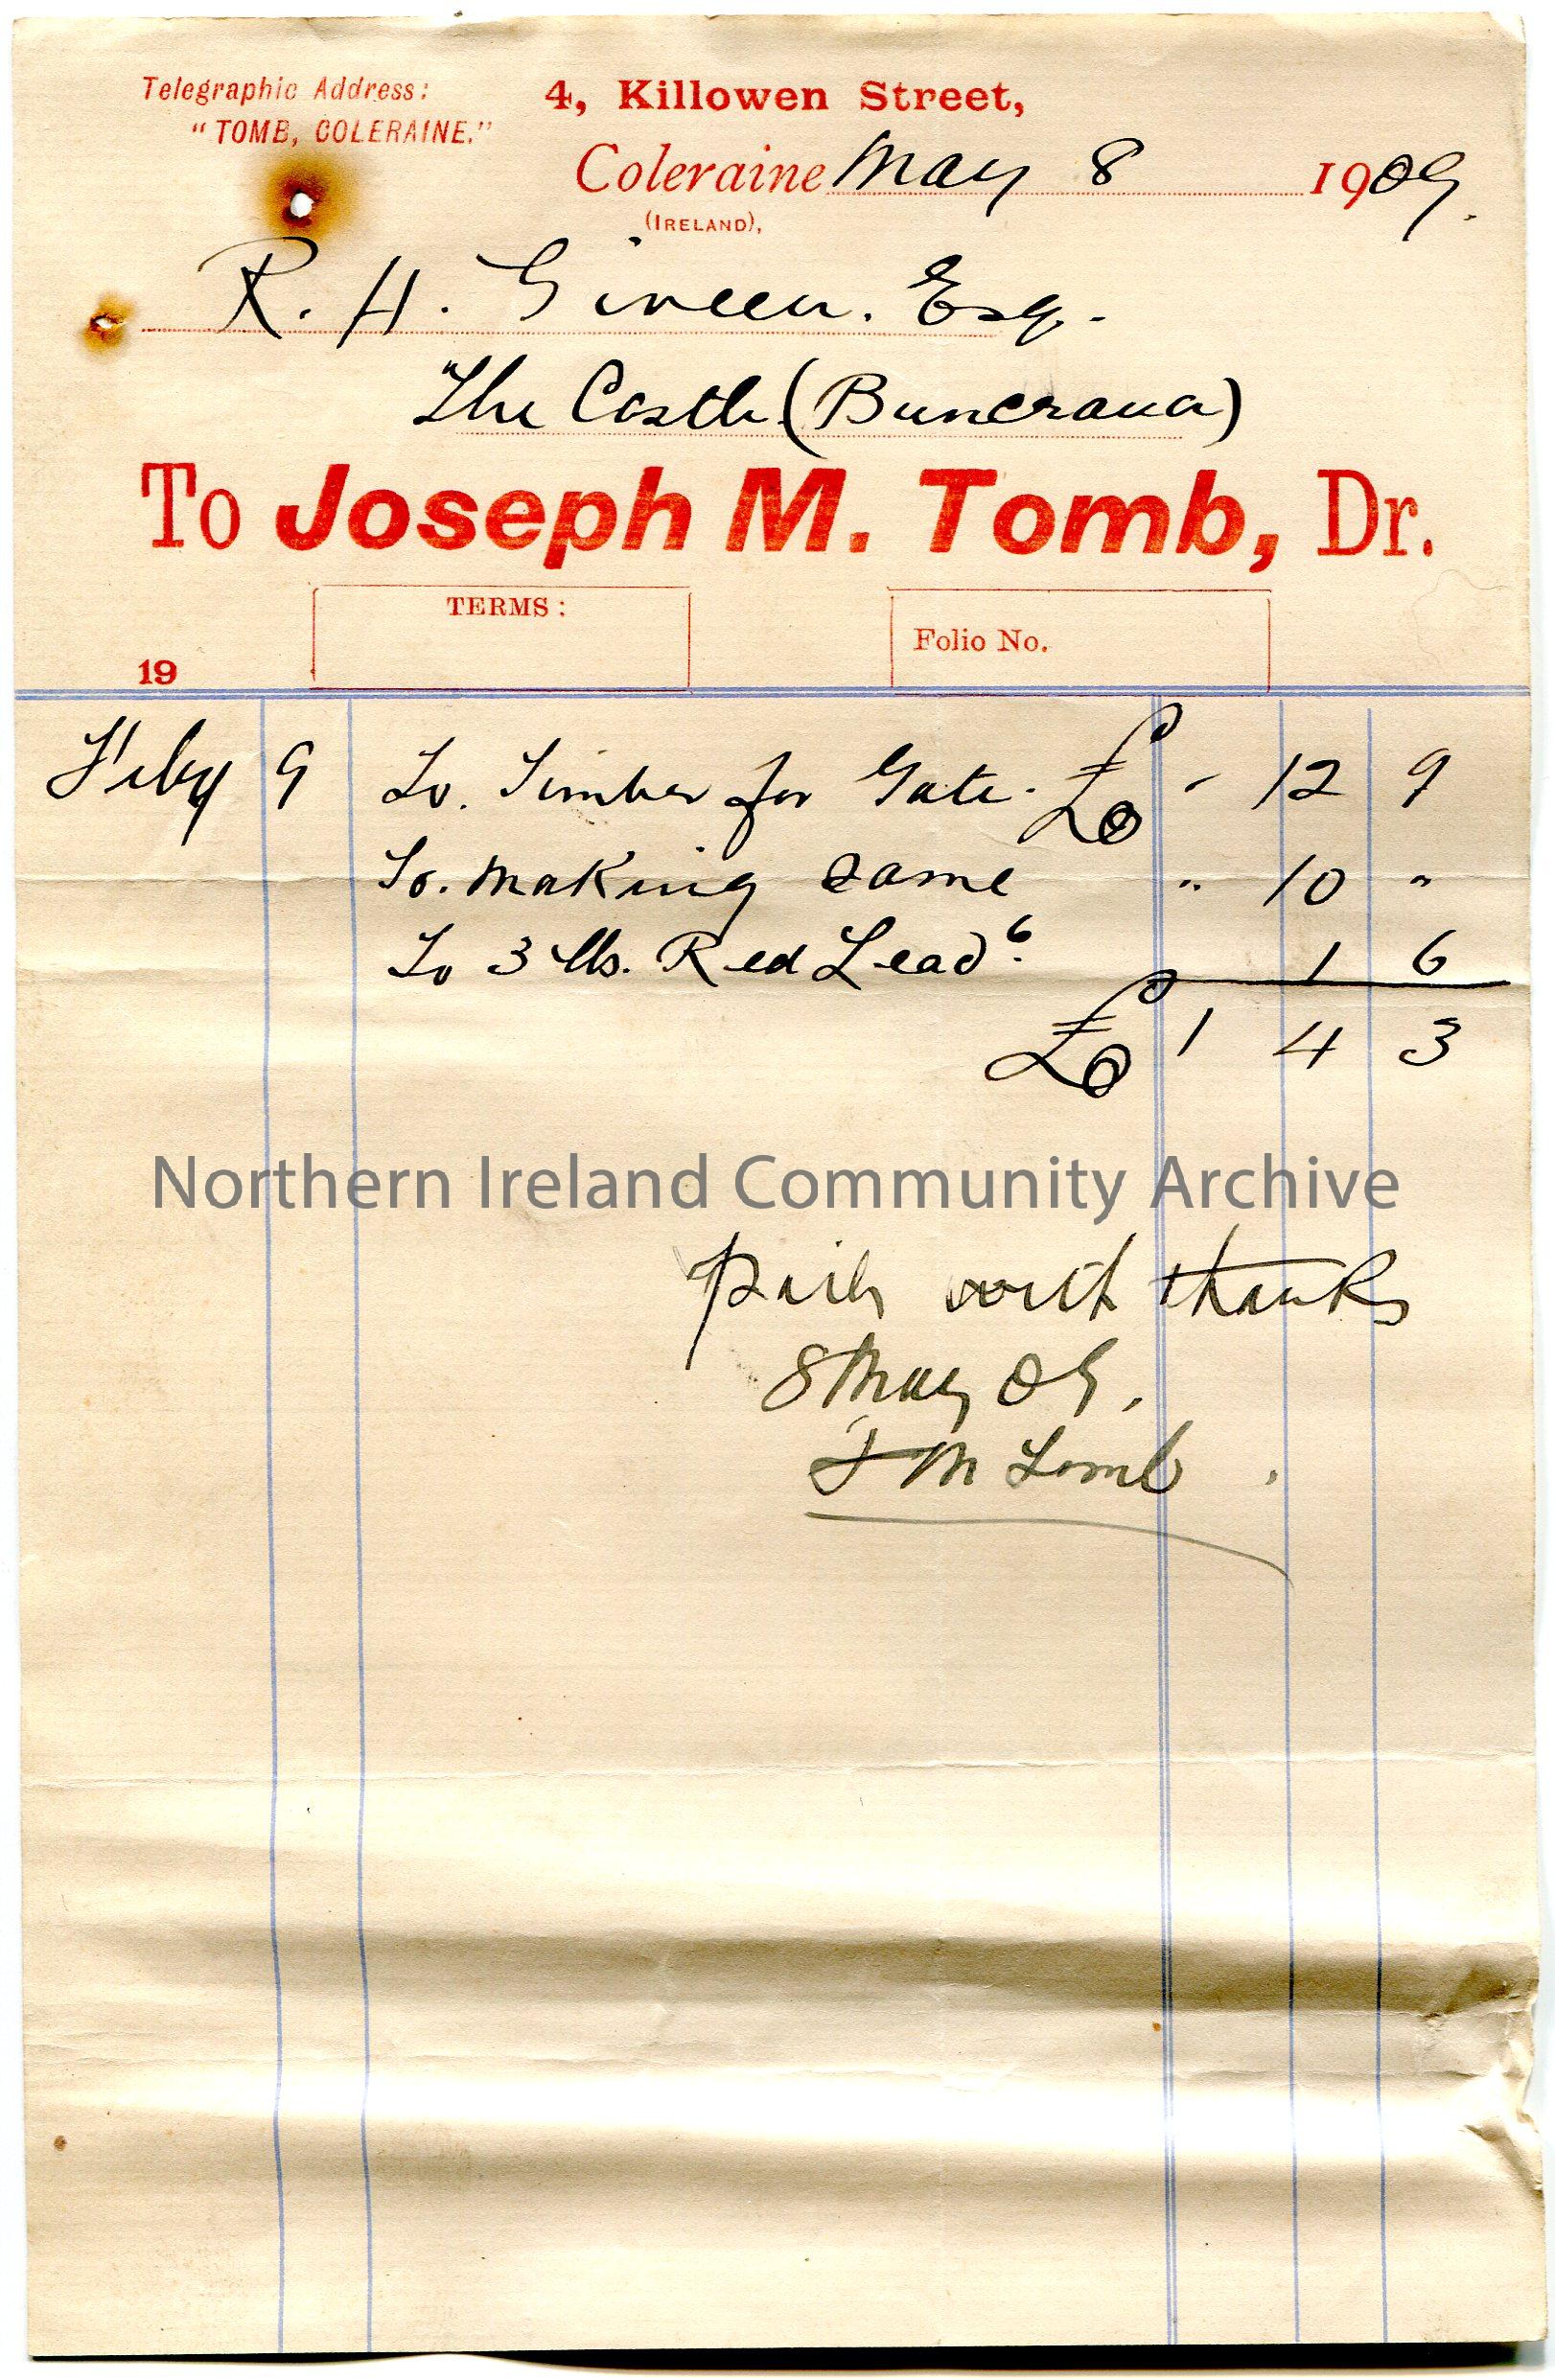 Telegraphic Address:
"TOMB, COLERAINE."
4, Killowen Street,
Coleraine May 8 1909.
(IRELAND),
R. H. Given. Esq.
The Castle (Buncrana)
To Joseph M. Tomb, Dr.
TERMS:
Folio No.
19
Feby 9 To. Timber for Gate. £ " 12 9
To. making same " 10 "
To 3 lbs. Red Lead 6. 1 6
£ 1 4 3
Northern Ireland Community Archive
paid with thanks
8 May 09.
J M Tomb.